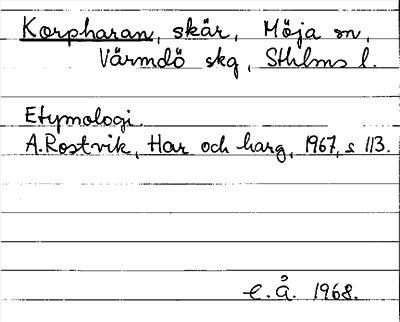 Korpharan, skär, Möja sn,
Värmdö skg, Sthlms l.
Etymologi.
A. Rostvik, Har och harg, 1967, s 113.
E. Å. 1968.